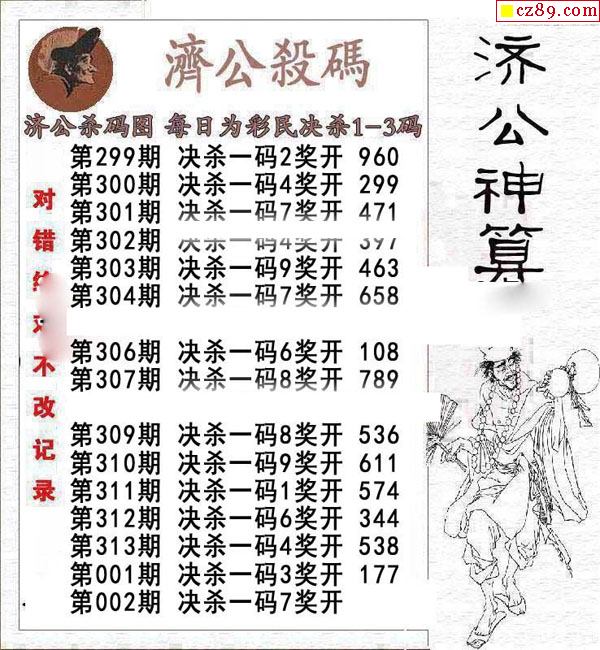 cz89.com
濟公殺碼
济公杀码图 每日为彩民决杀1-3码
第299期 决杀一码2奖开 960
第300期 决杀一码4奖开 299
第301期 决杀一码7奖开 471
第302期 决杀一码4奖开 397
第303期 决杀一码9奖开 463
第304期 决杀一码7奖开 658
第306期 决杀一码6奖开 108
第307期 决杀一码8奖开 789
第309期 决杀一码8奖开 536
第310期 决杀一码9奖开 611
第311期 决杀一码1奖开 574
第312期 决杀一码6奖开 344
第313期 决杀一码4奖开 538
第001期 决杀一码3奖开 177
第002期 决杀一码7奖开
对错 不改记录
济公神算